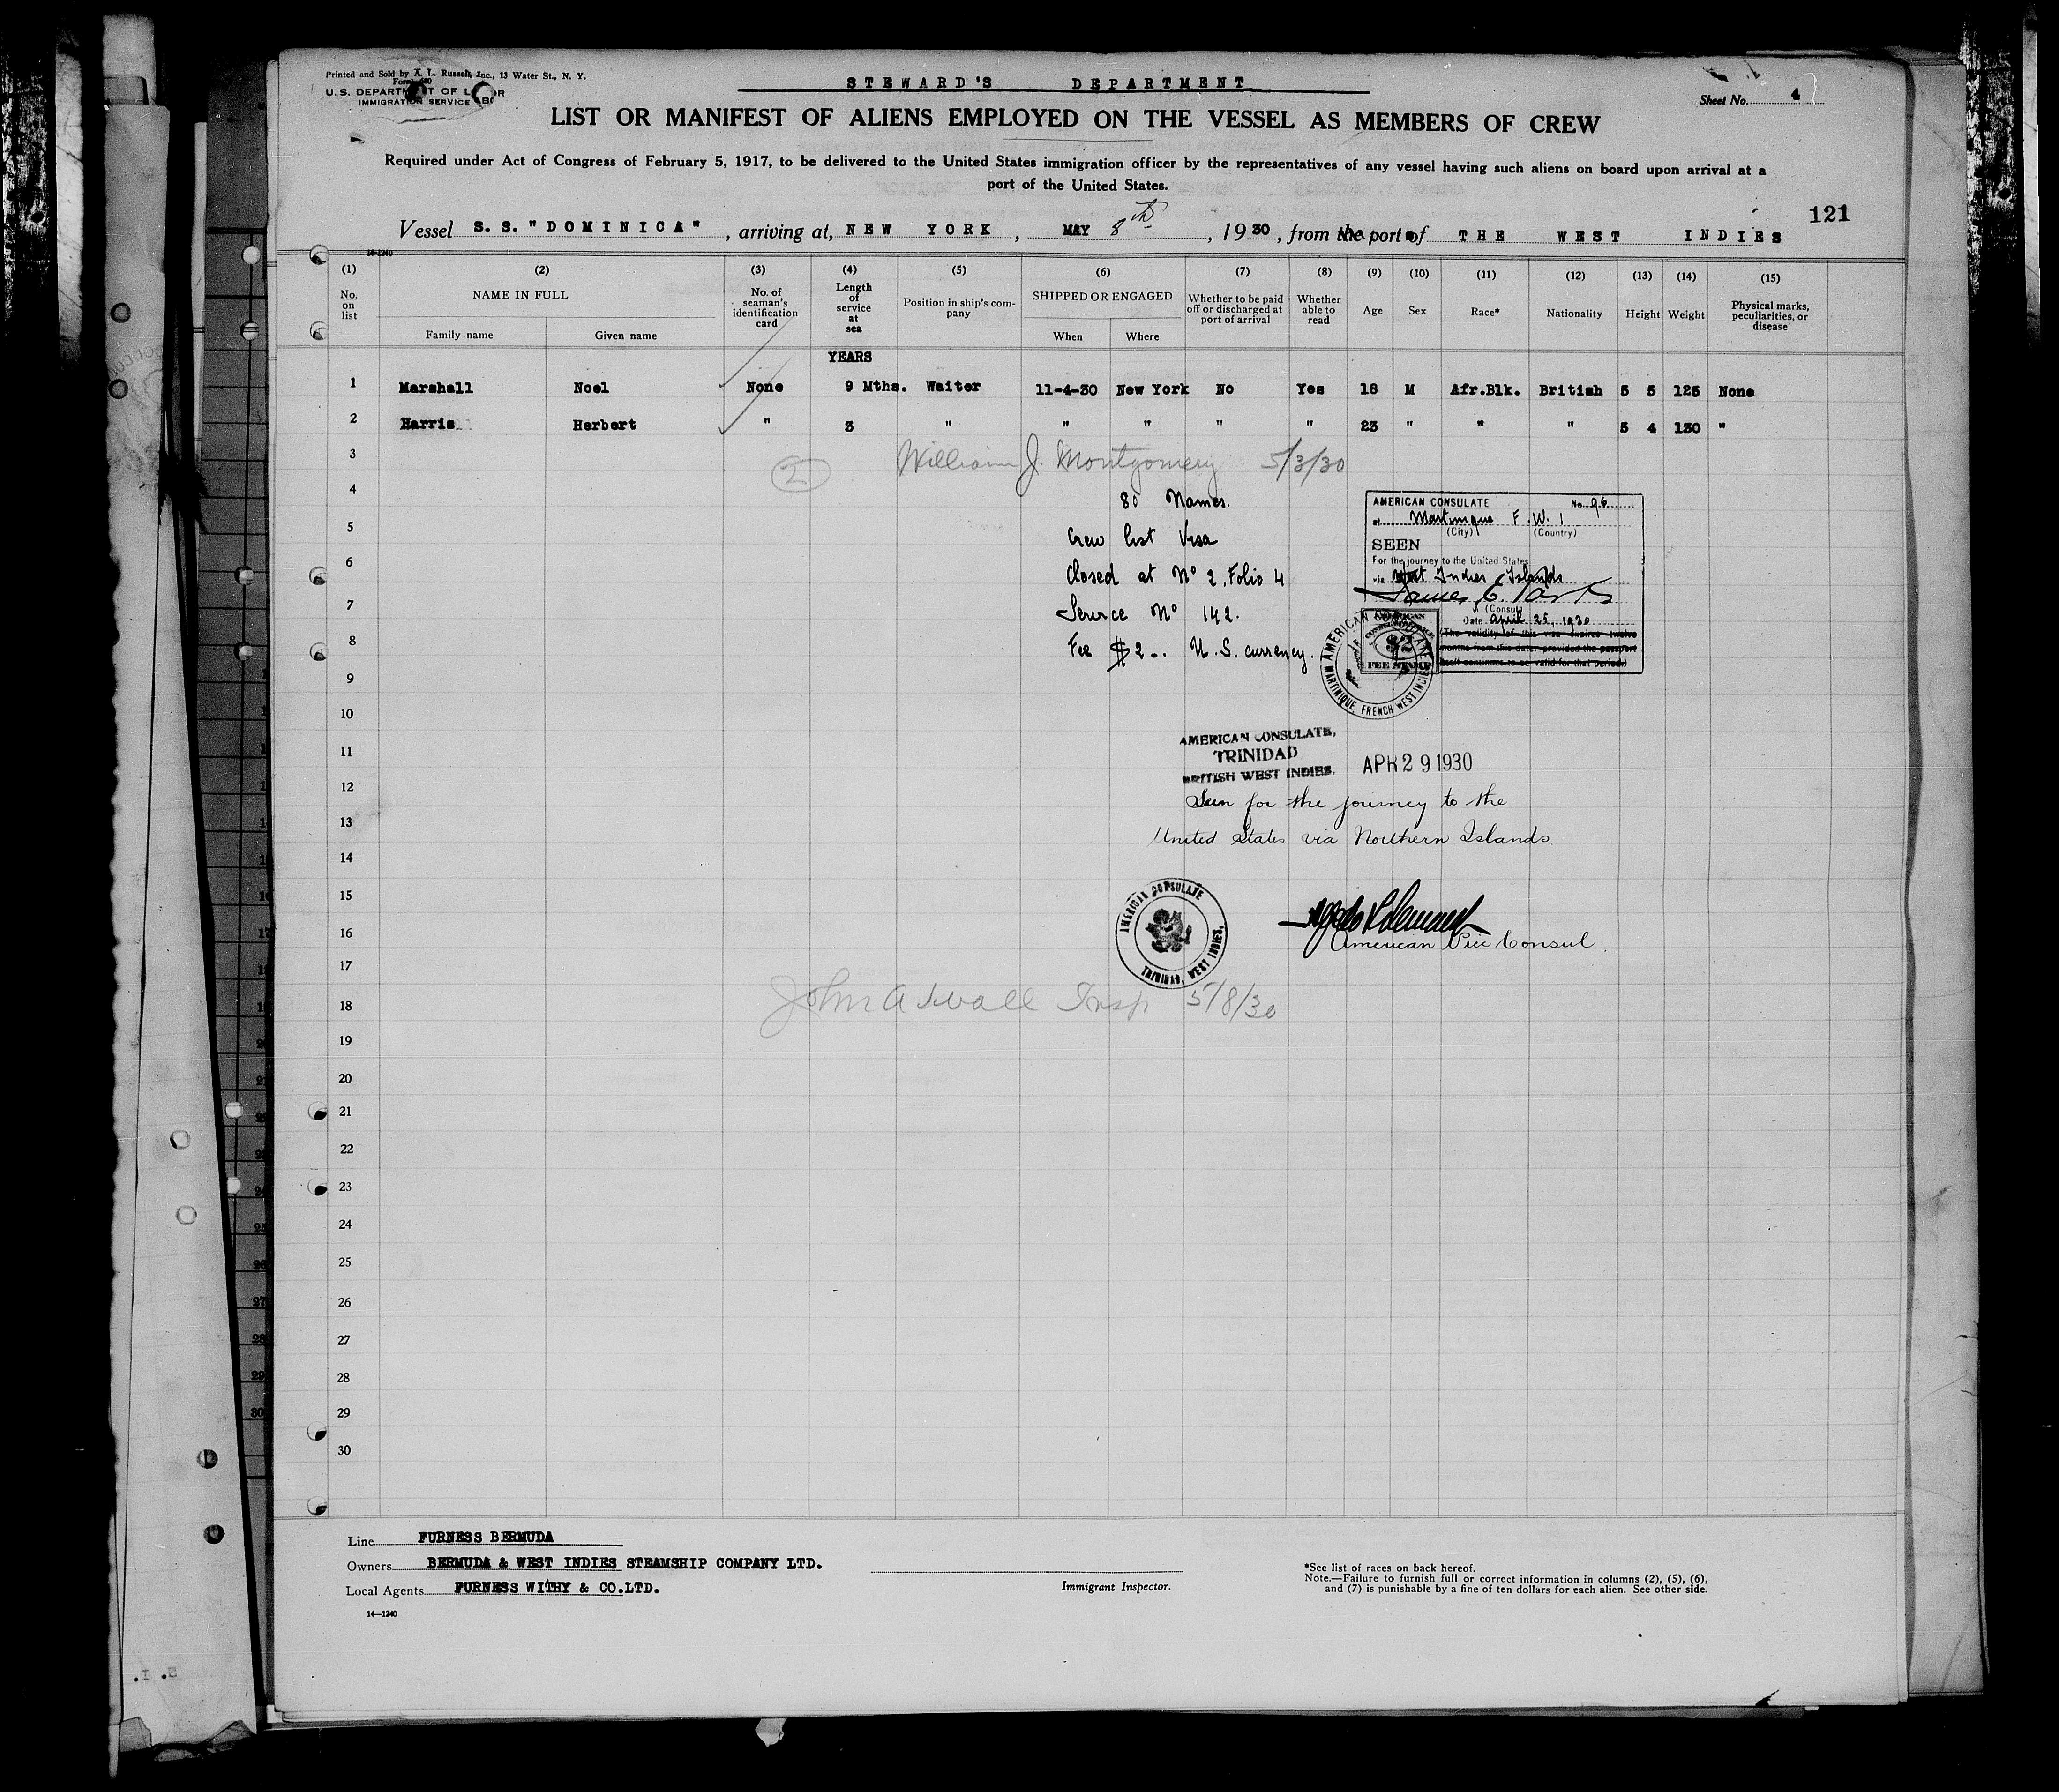 Printed and Sold by A. L. Russell, Inc., 13 Water St., N. Y.
Form 680
U. S. DEPARTMENT OF LABOR
IMMIGRATION SERVICE
STEWARD'S DEPARTMENT
Sheet No. 4
LIST OR MANIFEST OF ALIENS EMPLOYED ON THE VESSEL AS MEMBERS OF CREW
Required under Act of Congress of February 5, 1917, to be delivered to the United States immigration officer by the representatives of any vessel having such aliens on board upon arrival at a
port of the United States.
121
Vessel S. S. "DOMINICA", arriving at, NEW YORK, MAY 8th, 1930, from the port of THE WEST INDIES
14-1240
(1) (2) (3) (4) (5) (6) (7) (8) (9) (10) (11) (12) (13) (14) (15)
No. on list
NAME IN FULL
Family name Given name
No. of seaman's identification card
Length of service at sea
Position in ship's company
SHIPPED OR ENGAGED
When Where
Whether to be paid off or discharged at port of arrival
Whether able to read
Age
Sex
Race*
Nationality
Height
Weight
Physical marks, peculiarities, or disease
YEARS
1 Marshall Noel None 9 Mths. Waiter 11-4-30 New York No Yes 18 M Afr.Blk. British 5 5 125 None
2 Harris Herbert " 3 " " " " " 23 " " " 5 4 130 "
3 (2) William J. Montgomery 5/3/30
4 80 Names.
5 Crew list Visa
6 Closed at Nº 2, Folio 4
7 Service Nº 142.
8 Fee $2.. U. S. currency.
AMERICAN CONSULATE No. 96
at Martinique F. W. I
(City) (Country)
SEEN
For the journey to the United States
via West Indies Islands
(Consul)
Date April 25, 1930
(The validity of this visa expires twelve
months from this date, provided the passport
itself continues to be valid for that period.)
AMERICAN
$2
FEE STAMP
AMERICAN CONSULATE
MARTINIQUE, FRENCH WEST INDIES
9
10
11
AMERICAN CONSULATE,
TRINIDAD
BRITISH WEST INDIES.
APR 29 1930
12 Seen for the journey to the
13 United States via Northern Islands.
14
15
AMERICAN CONSULATE
TRINIDAD, WEST INDIES,
16 American Vice Consul.
17
18 John A Swall Insp 5/8/30
19
20
21
22
23
24
25
26
27
28
29
30
Line FURNESS BERMUDA
Owners BERMUDA & WEST INDIES STEAMSHIP COMPANY LTD.
Local Agents FURNESS WITHY & CO.LTD.
14—1240
Immigrant Inspector.
*See list of races on back hereof.
Note.—Failure to furnish full or correct information in columns (2), (5), (6),
and (7) is punishable by a fine of ten dollars for each alien. See other side.